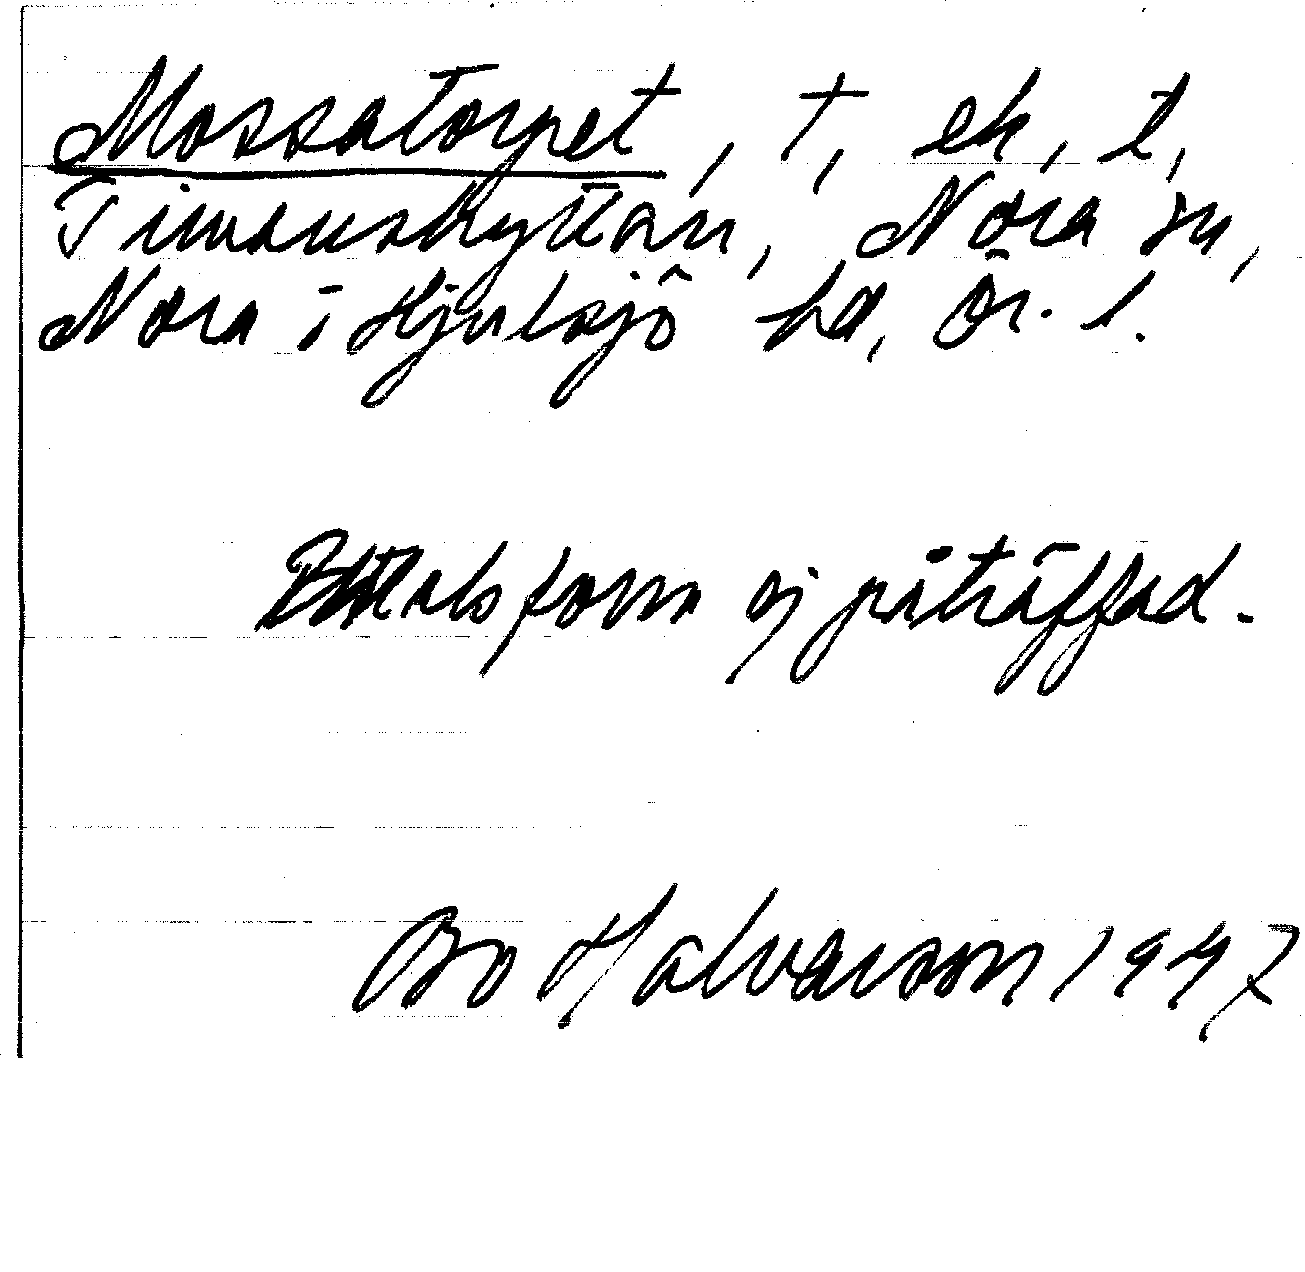 Mossatorpet, t, ek, t,
Timanshyttan, Nora sn,
Nora i Hjulsjö hd, Ör. l.
Uttalsform ej påträffad.
Bo Halvarson 1947